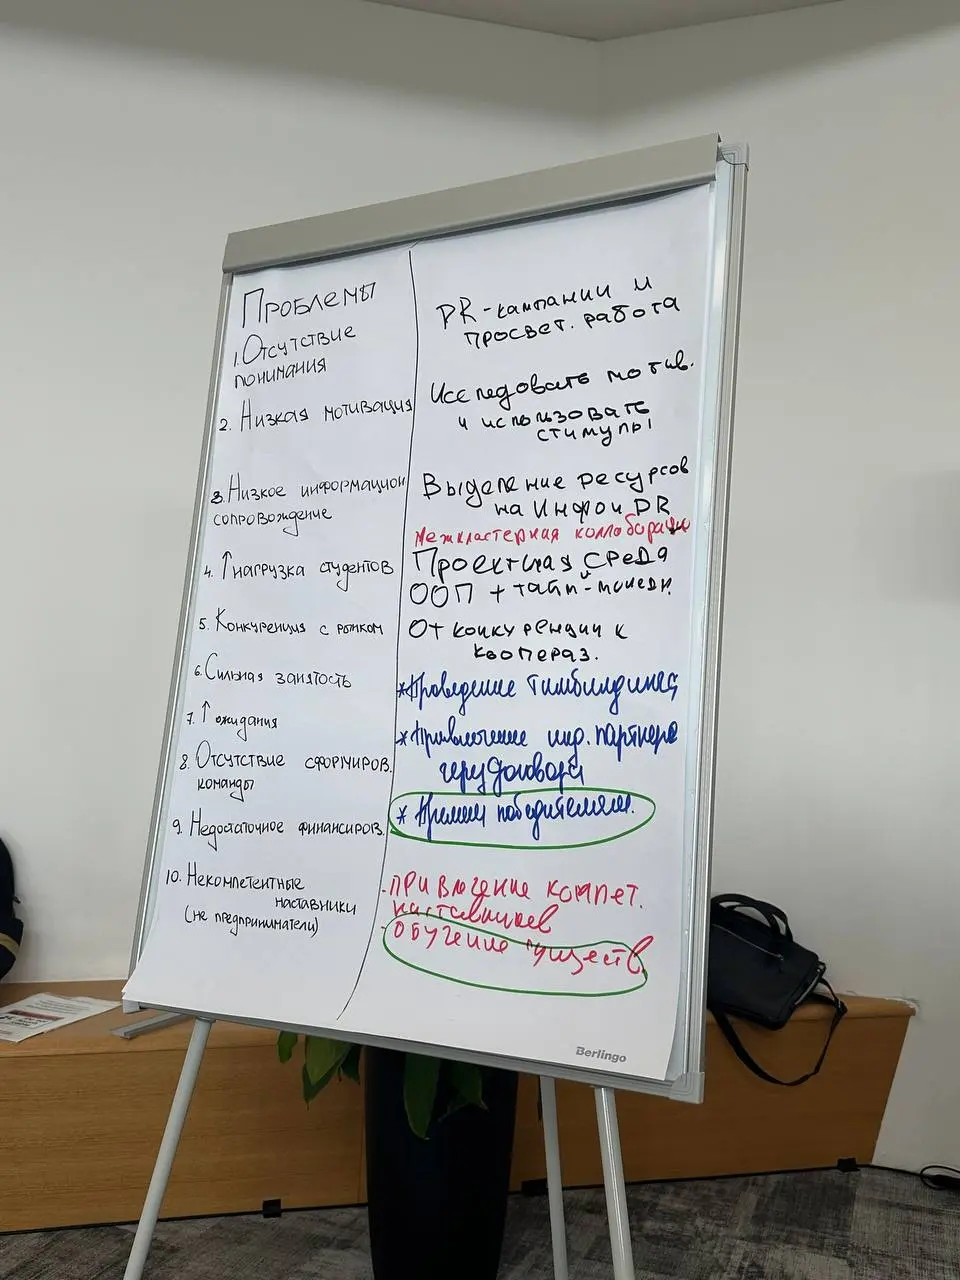 Проблемы
1. Отсутствие
понимания
2. Низкая мотивация
3. Низкое информацион
сопровождение
4. ↑ нагрузка студентов
5. Конкуренция с рынком
6. Сильная занятость
7. ↑ ожидания
8. Отсутствие сформиров.
команды
9. Недостаточное финансиров.
10. Некомпетентные
наставники
(не предприниматели)
PR-кампании и
просвет. работа
Исследовать мотив.
и использовать
стимулы
Выделение ресурсов
на Инфо и PR
Межкластерная коллаборация
Проектная среда
ООП + тайм-менедж.
От конкуренции к
коопераз.
* Проведение тимбилдинга
* Привлечение инд. партнера
ч/з договора
* Премии победителям.
- привлечение компет.
наставников
- обучение существ.
Berlingo